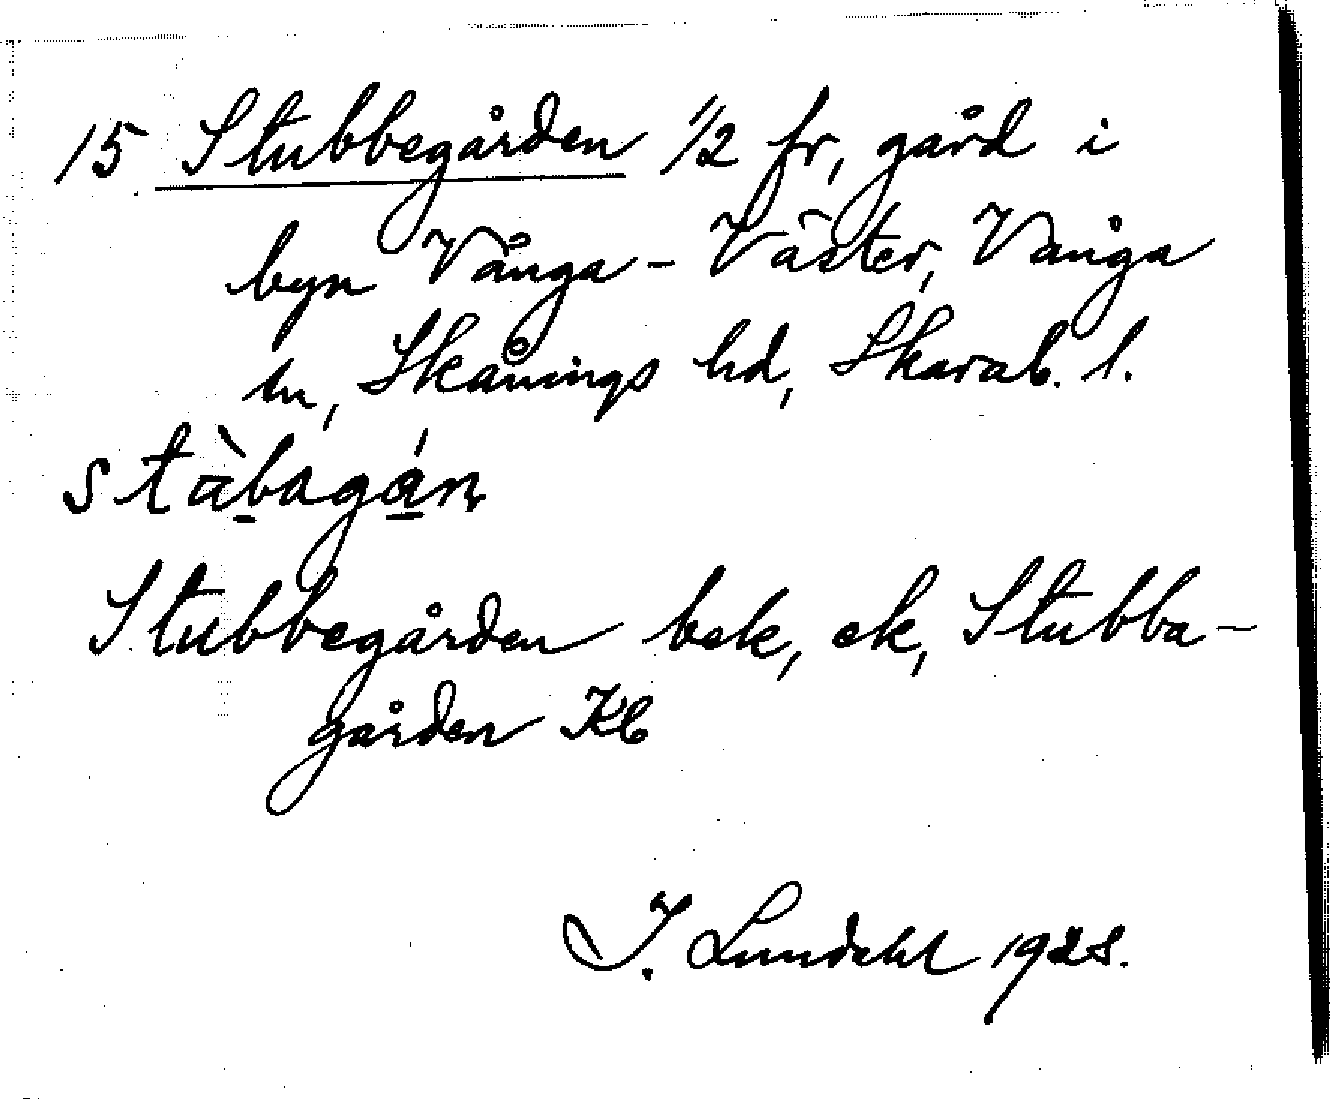 15 Stubbegården 1/2 fr, gård i
byn Vånga-Väster, Vånga
sn, Skånings hd, Skarab. l.
Stubbegården bek, ek, Stubba-
gården Kb
I. Lundahl 1928.